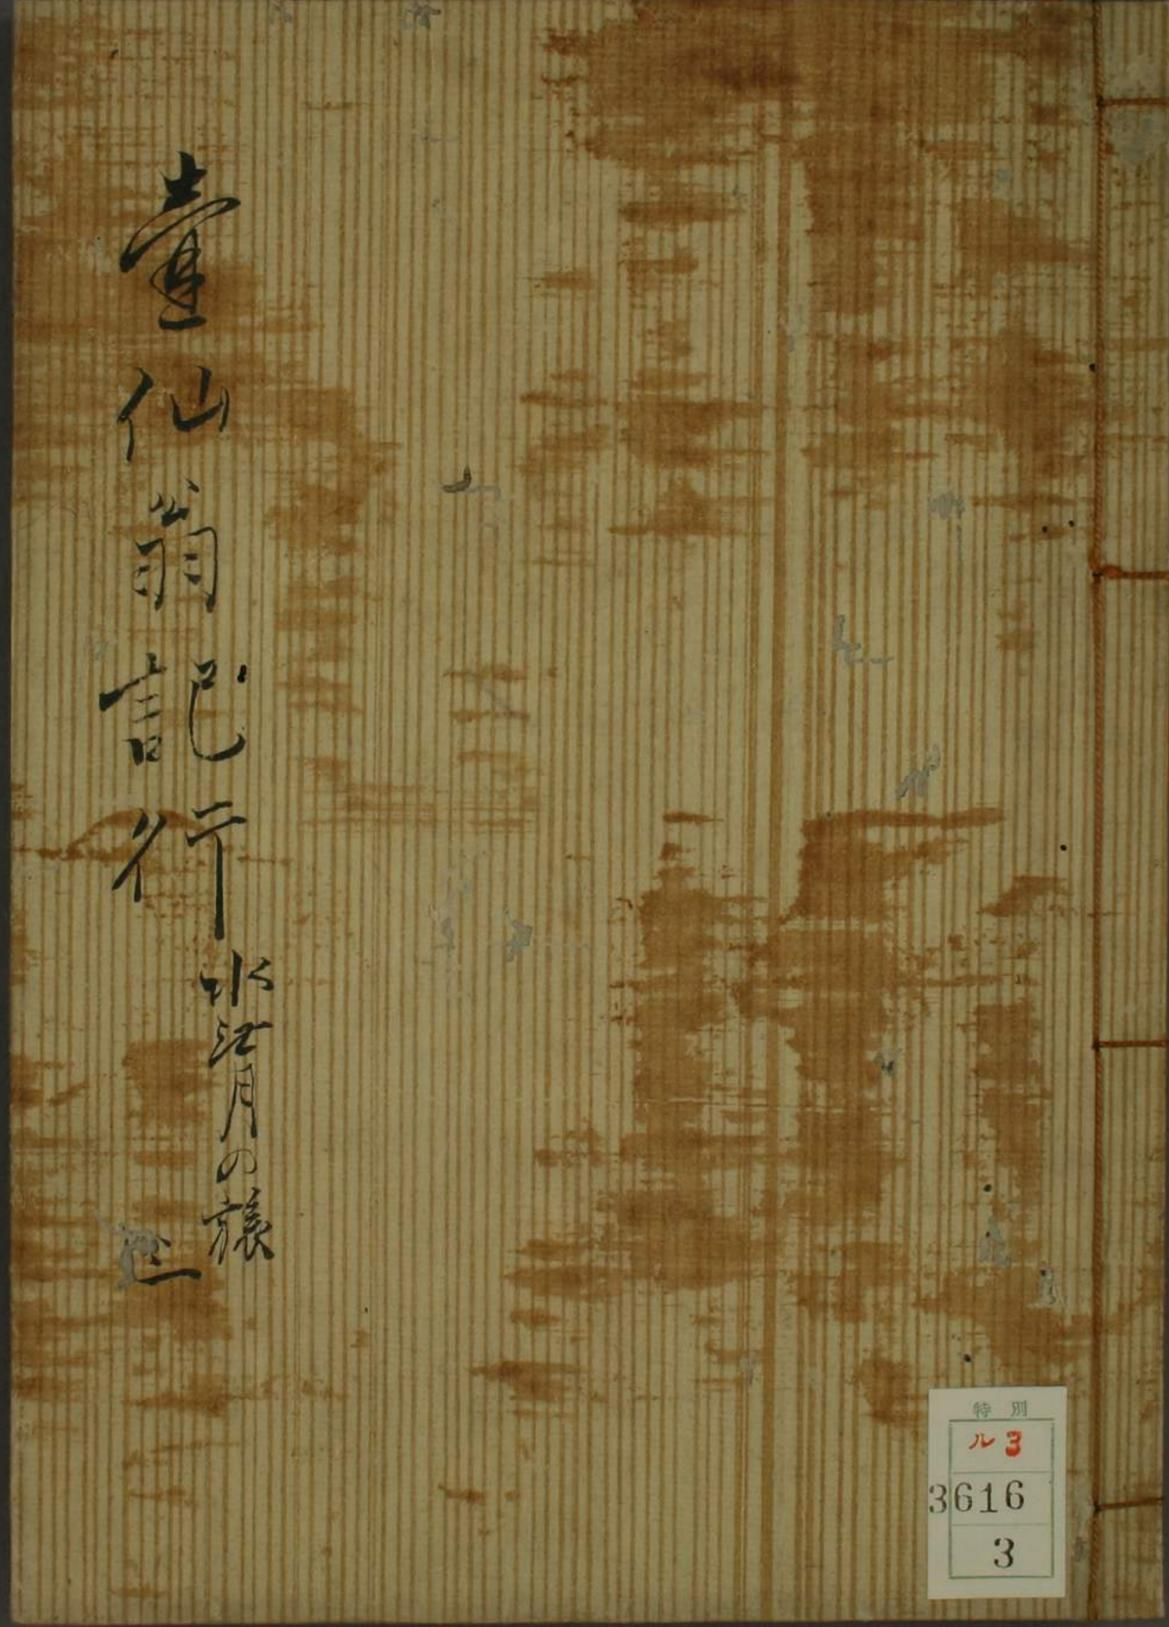 壷仙翁記行
水無月の旅
特別
ル3
3616
3